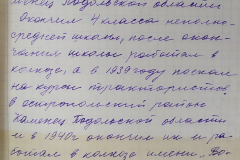 менец Подольской области
Окончил 4 класса неполно-
средней школы, после окон-
чания школы работал в
колхозе, а в 1939 году поехал
на курсы трактористов,
в остропольский район
Каменец Подольской области
и в 1940г окончил их и ра-
ботал в колхозе имени „Бо-